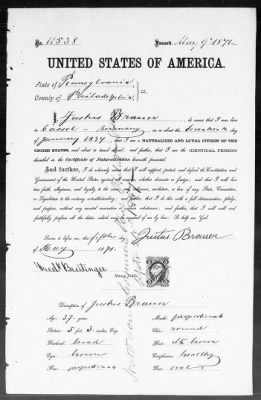 No. 11538 Issued May 9th 1871
UNITED STATES OF AMERICA.
State of Pennsylvania
County of Philadelphia } ss.
I Justus Brauer, do swear that I was born
at Cassel Germany on or about the day
of January 1834; that I am a NATURALIZED AND LOYAL CITIZEN OF THE
UNITED STATES, and about to travel abroad; and further, that I am the IDENTICAL PERSON
described in the Certificate of Naturalization herewith presented.
And further, I do solemnly swear that I will support, protect, and defend the Constitution and
Government of the United States against all enemies, whether domestic or foreign, and that I will bear
true faith, allegiance, and loyalty to the same, any ordinance, resolution, or law of any State, Convention,
or Legislature to the contrary notwithstanding; and further, that I do this with a full determination, pledge,
and purpose, without any mental reservation or evasion whatsoever; and further, that I will well and
faithfully perform all the duties which may be required of me by law: So help me God.
Sworn to before me, this fifth day
of May 1871.
Justus Brauer
Fred Breitinger
Notary Public
Description of Justus Brauer
Age: 37 years
Mouth: proportionate
Stature: 5 feet 3 inches, Eng.
Chin: round
Forehead: broad
Hair: dk brown
Eyes: brown
Complexion: healthy
Nose: proportionate
Face: oval